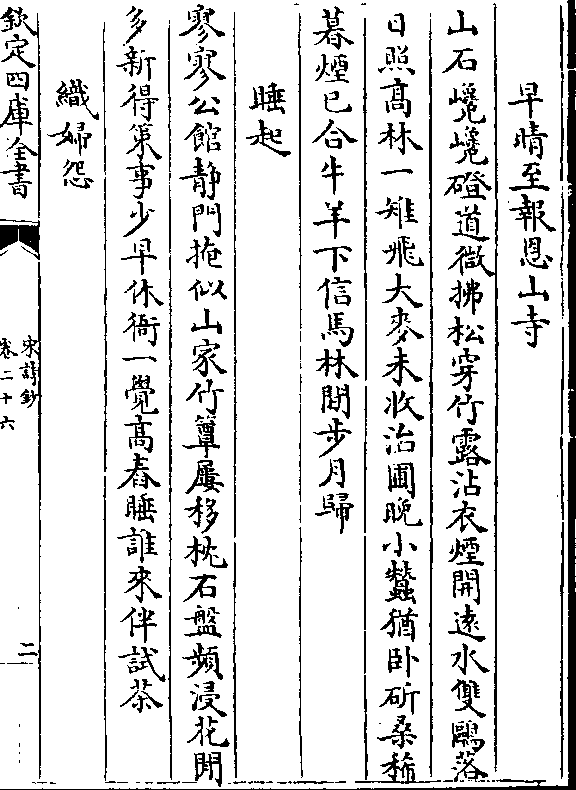 早晴至報恩山寺
山石巉巉磴道微拂松穿竹露沾衣煙開逺水雙鷗落
日照髙林一雉飛大麥未收治圃晩小蠶猶卧斫桑稀
暮煙已合牛羊下信馬林間步月歸
睡起
寥寥公館静門掩似山家竹簟屢移枕石盤頻浸花閒
多新得策事少早休衙一覺髙舂睡誰來伴試茶
織婦怨
欽定四庫全書
宋詩鈔
卷二十六
二